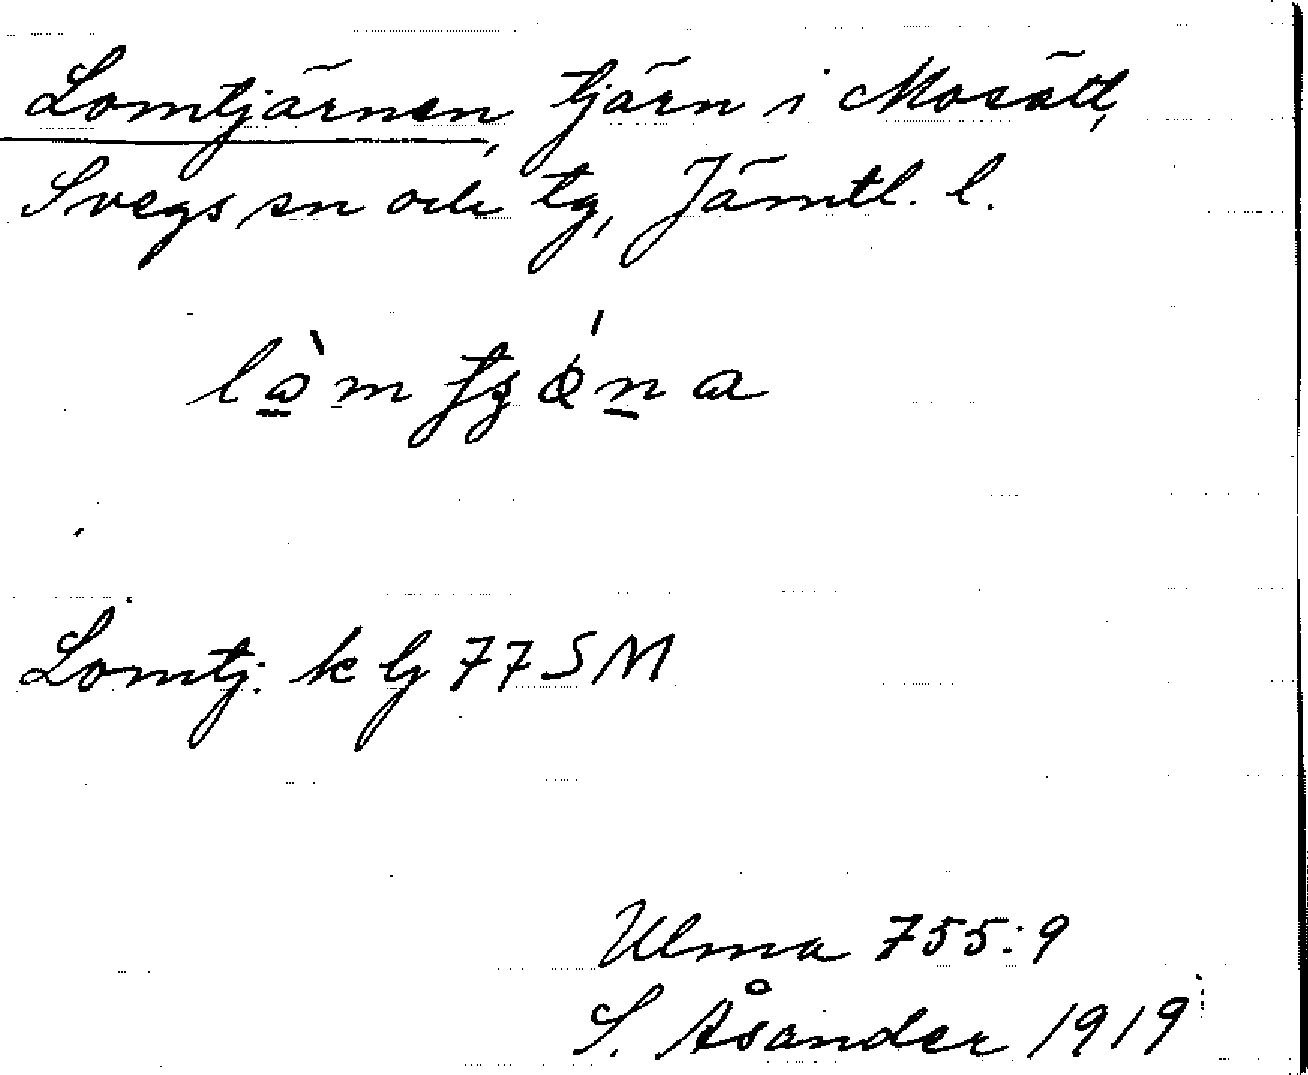 Lomtjärnen, tjärn i Mosätt,
Svegs sn och tg, Jämtl. l.
Lomtj. k lj 77 SM
Ulma 755:9
S. Åsander 1919